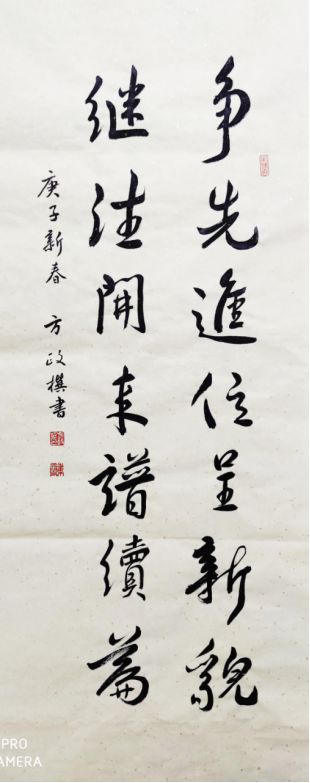 争先進位呈新貌
继往開来譜續篇
庚子新春 方政撰書
PRO
AMERA